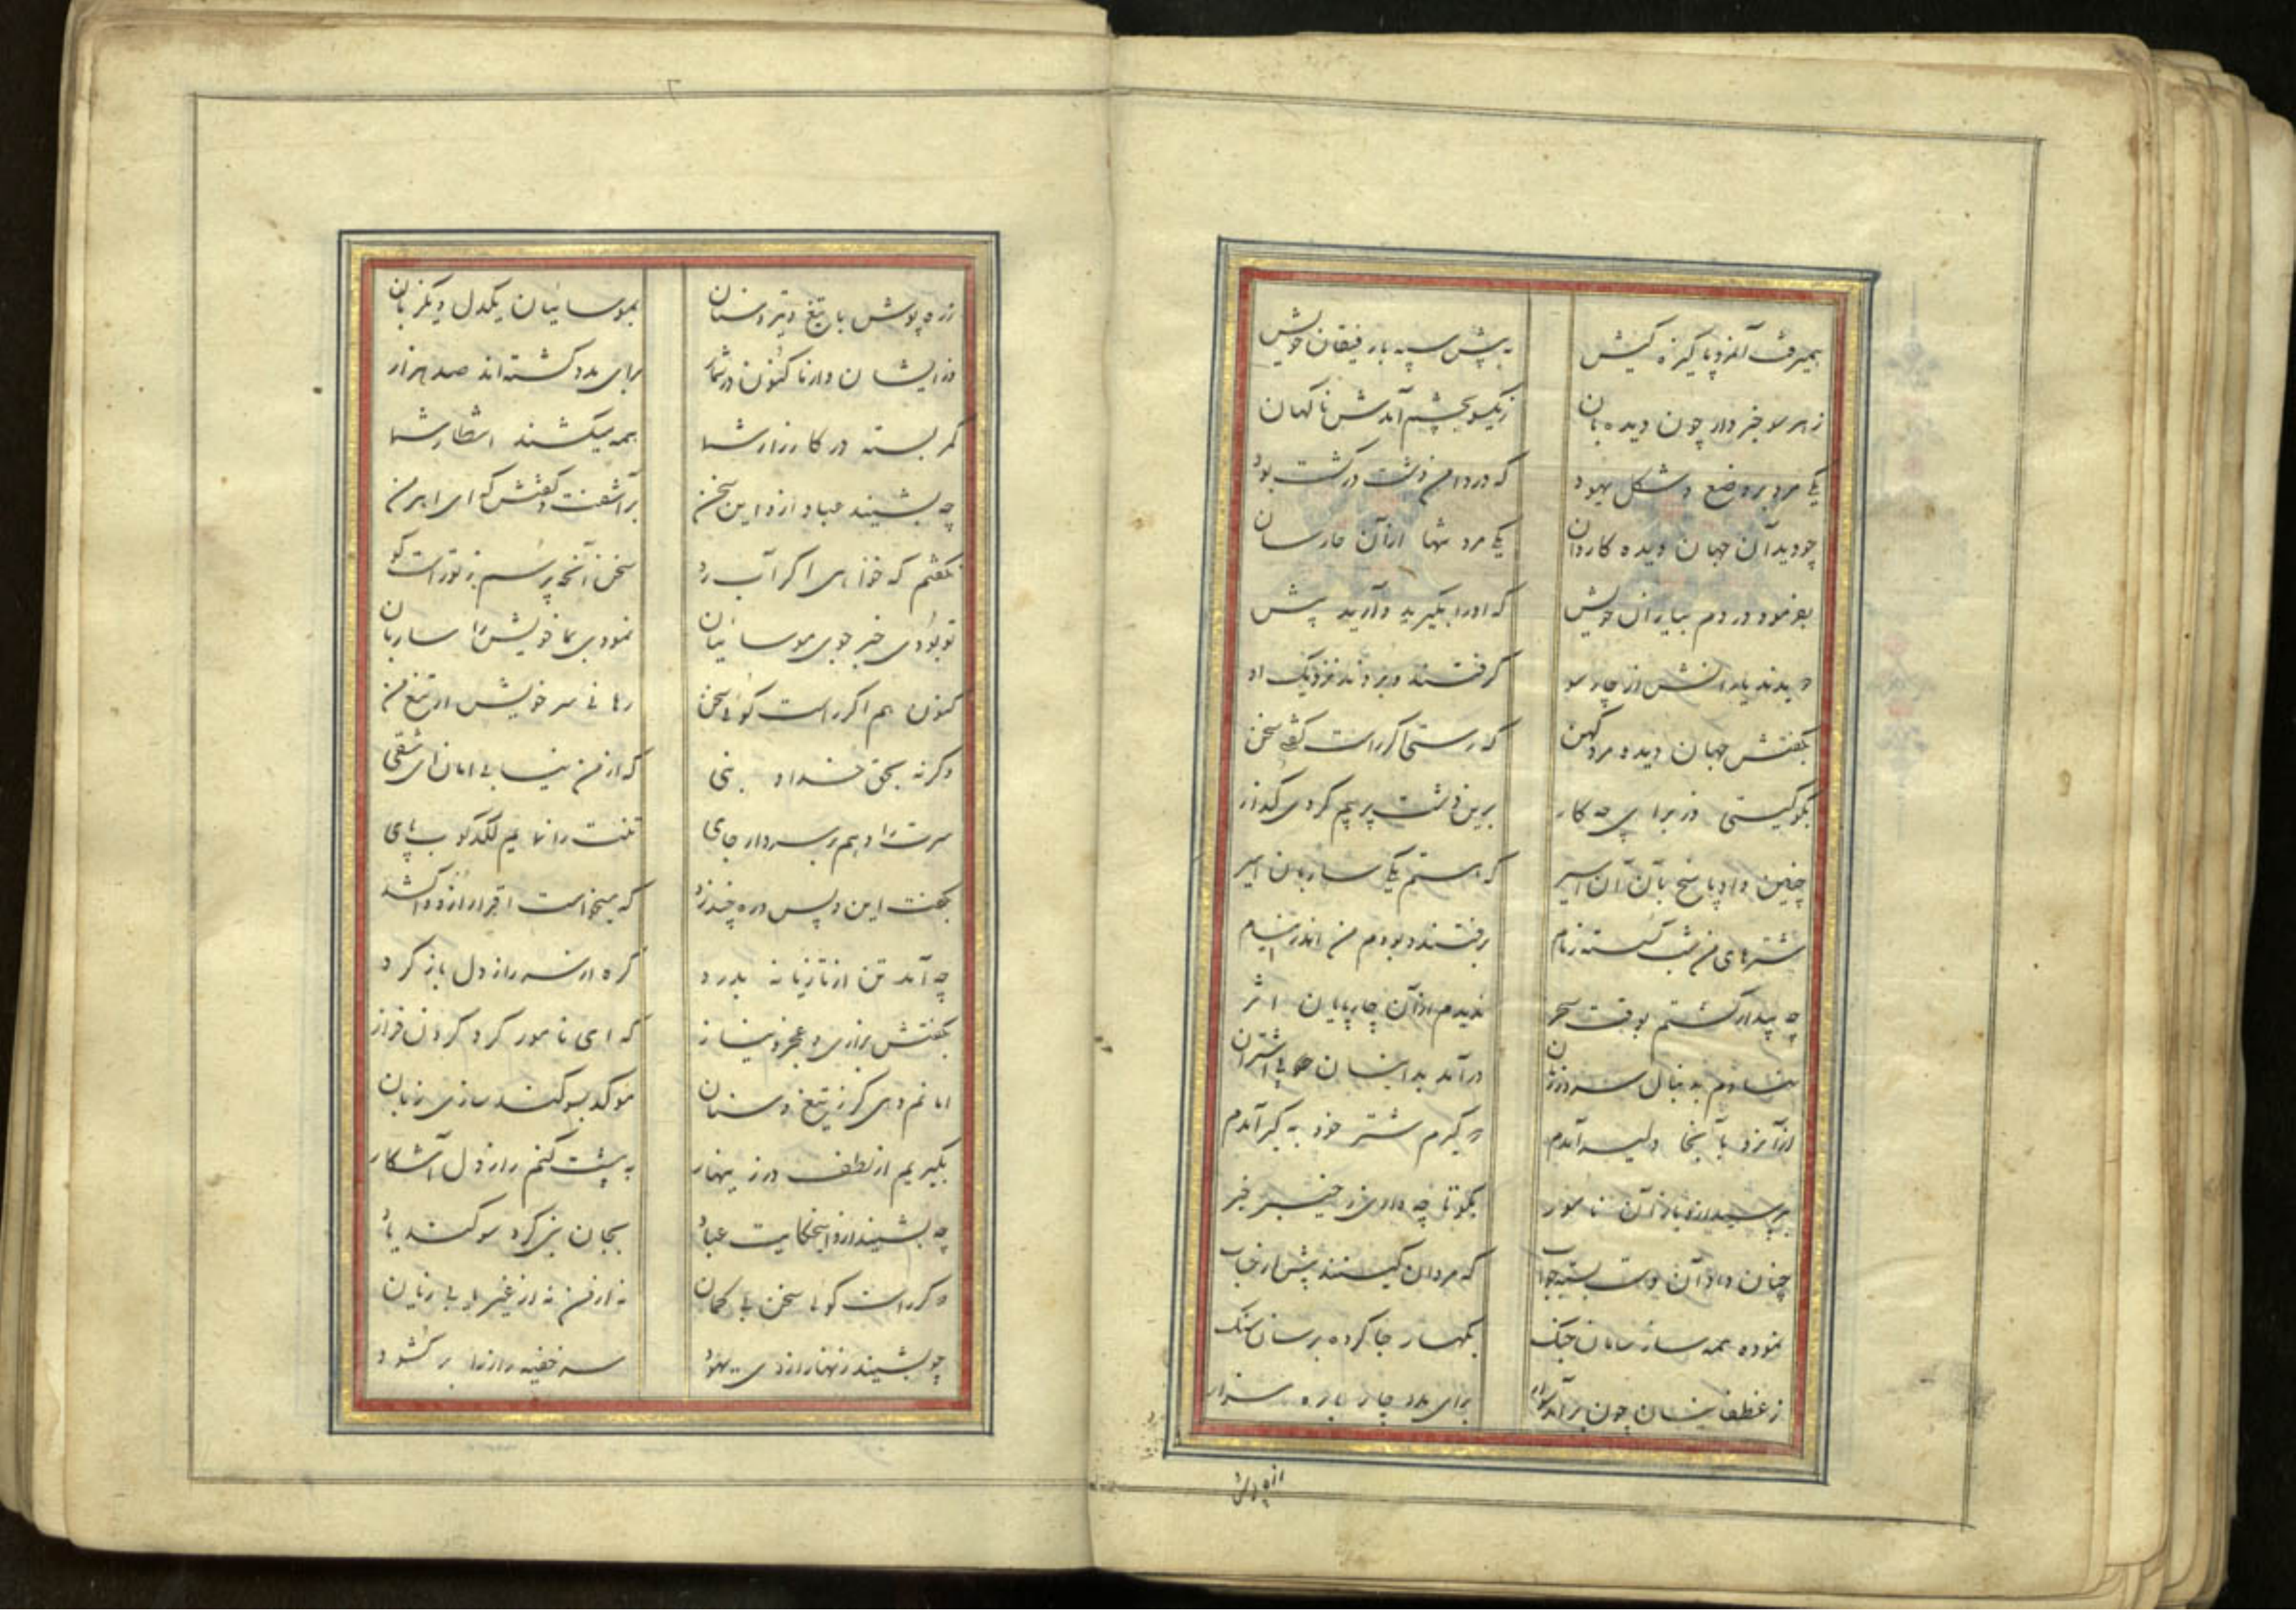 همیرفت آنمرد پاکیزه کیش به پیش سپه با رفیقان خویش
ز هر سو خبردار چون دیده‌بان ز یکسو بچشم آمدش ناکهان
یکی مرد بر وضع و شکل یهود که در دامن دشت در کشت بود
چو دید آن جهان دیده کاردان یکی مرد تنها از آن خارسان
بفرمود در دم بیاران خویش که او را بگیرید و آرید پیش
دویدند یارانش از چار سو گرفتند و بردند نزدیک او
بگفتش جهان دیده مرد کهن که رستی اگر راست گفتی سخن
بگو کیستی وز برای چه کار برین دشت پر بیم کردی گذار
چنین داد پاسخ بآن آن اسیر که هستم یکی ساربان امیر
شترهای من شب گسسته زمام برفتند و بودم من اندر نیام
چه بیدار گشتم بوقت سحر ندیدم از آن چارپایان اثر
فتادم به دنبال در آمد بدینسان پی اشتران
از آنرو بآنجا دلیر آمدم که گیرم شتر خود به گیر آمدم
بپرسید ازو باز آن نامور بگو تا چه داری ز خیبر خبر
چنان داد آن جواب که مردان کینند پیش از حساب
نموده همه ساز و سامان جنگ بکهسار جا کرده بر سان سنگ
ز غطفانیان چون برای مدد چار باره سوار
زره پوش
زره پوش با تیغ و تیر و سنان بموسائیان یکدل و یکزبان
وز ایشان دار تا کنون در شمار برای مدد گشته‌اند صد هزار
کمر بسته در کارزار شما همه میکشند انتظار شما
چه بشنید عباد ازو این سخن برآشفت و گفتش که ای اهرمن
بگفتم که خواهی اگر آب رو سخن آنچه پرسم ز تو راست گو
تو بودی خبر جوی موسائیان نمودی بما خویش را ساربان
کنون هم اگر راست گوئی سخن رهانی سر خویش از تیغ من
وگرنه بحق خدا و نبی که از من نیابی امان ای شقی
سرت را دهم بر سر دار جای تنت را نمایم لگدکوب پای
بگفت این و پس دره چند زد که میخواست اقرار ازو
چه آمد تن از تازیانه بدرد گره از سر راز دل باز کرد
بگفتش بزاری و عجز و نیاز که ای نامور گرد گردن فراز
امانم دهی گر ز تیغ و سنان موکد بسوگند سازی زبان
بگیریم از لطف در زینهار به پیشت کنم راز دل آشکار
چه بشنید ازو اینحکایت عباد بجان نبی کرد سوگند یاد
که گر راست گوئی سخن بی گمان نه از من نه از غیر یابی زیان
چو بشنید زنهار از وی یهود سر خفیه راز را بر گشود